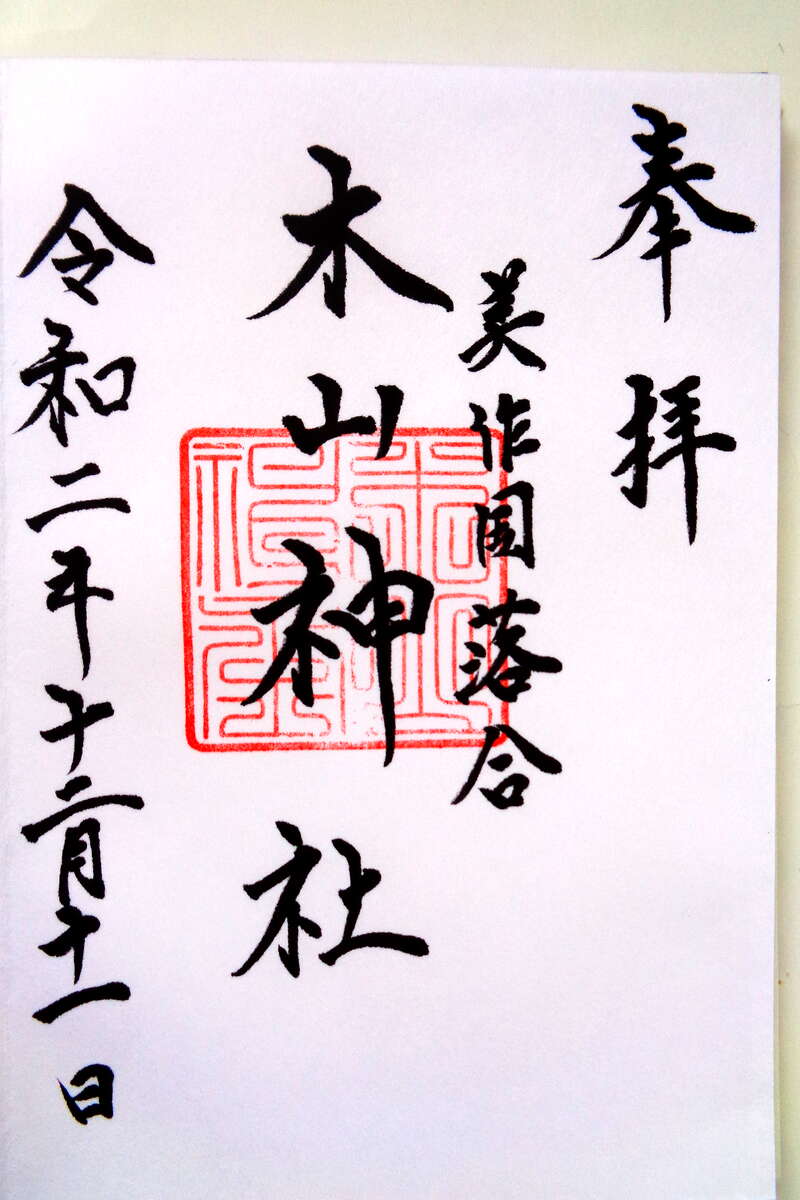 奉拝
美作国落合
木山神社
令和二年十二月十一日